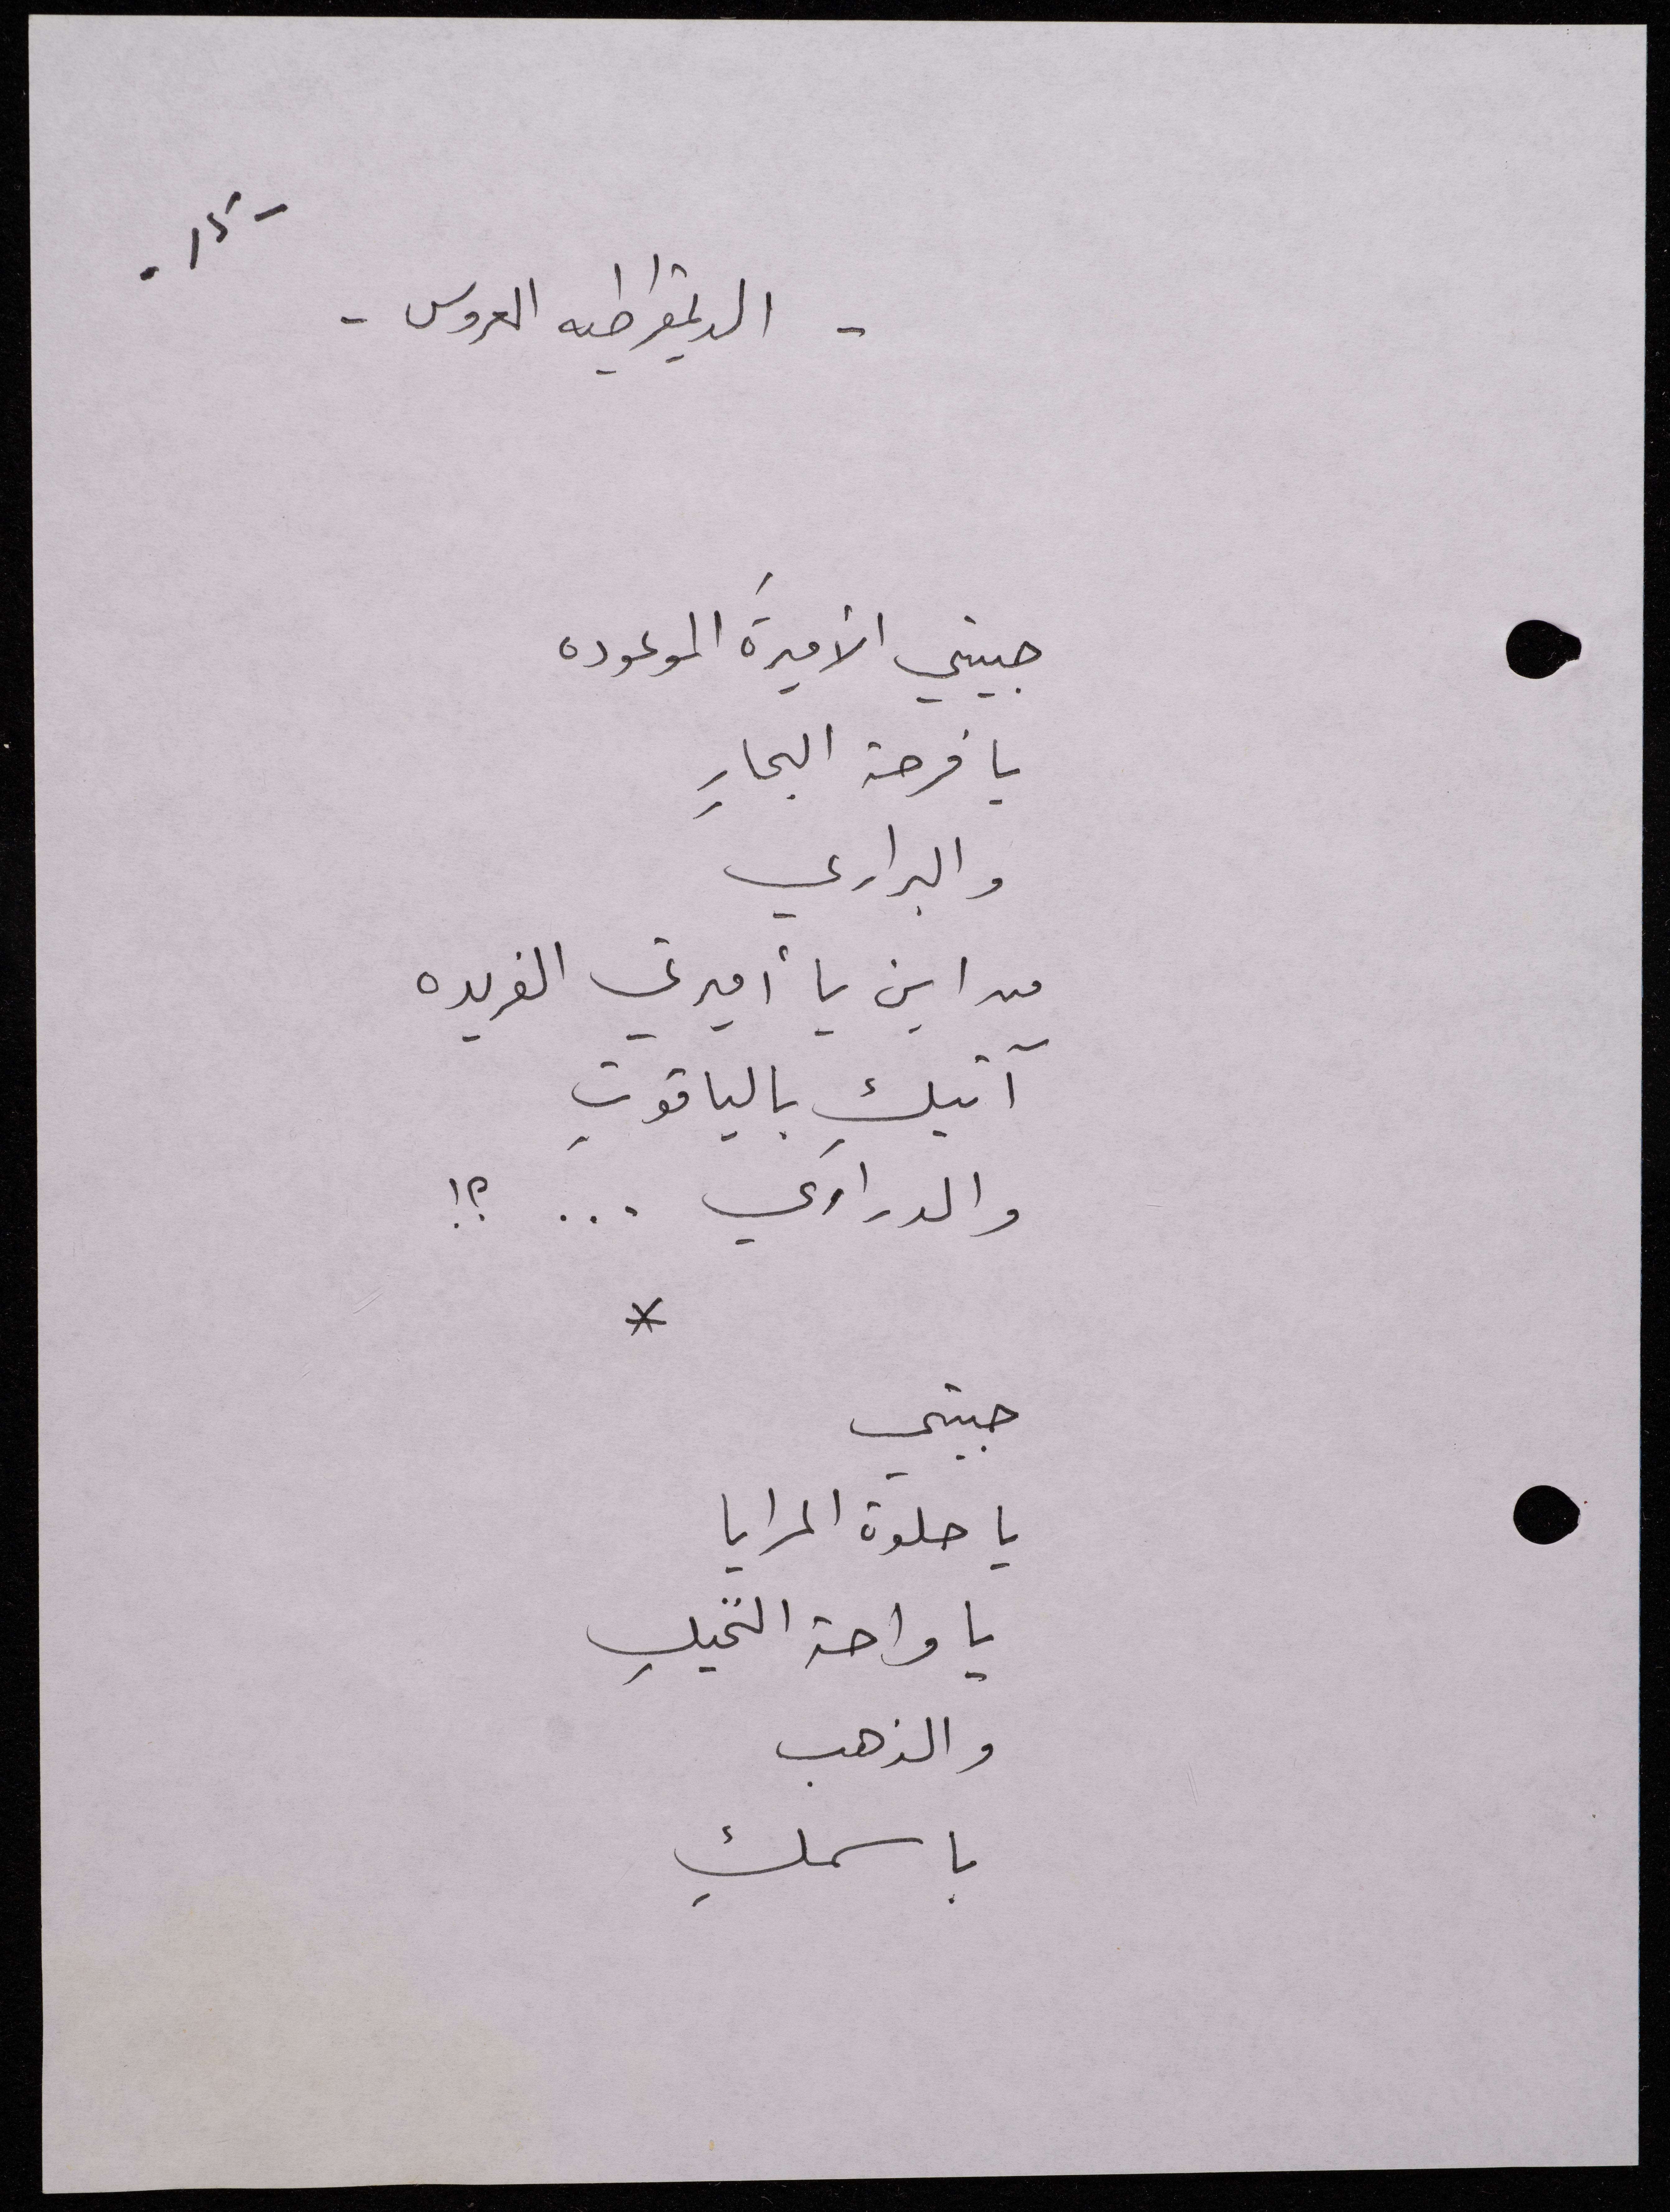 - الديمقراطيه العروس -
حبيبتي الأميرةَ الموعوده
يا فرحة البحارِ
والبراري
من اين يا أميرتي الفريده
آتيكِ بالياقوتِ
والدراري ... ؟!
*
حبيبتي
يا حلوة المرايا
يا واحة النخيلِ
والذهب
باسمكِ